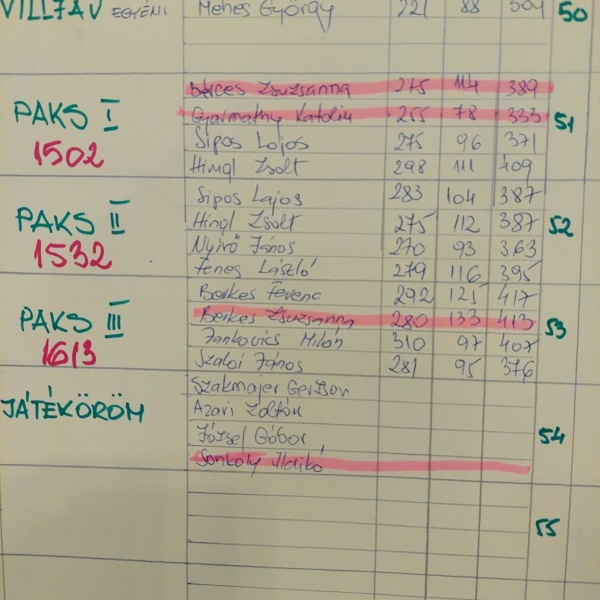 VILLTÁV EGYÉNI Mehes György 221 88 309 50
Bérces Zsuzsanna 275 114 389
PAKS I Gyarmathy Katalin 255 78 333 51
1502 Sipos Lajos 275 96 371
Hingl Zsolt 298 111 409
Sipos Lajos 283 104 387
PAKS II Hingl Zsolt 275 112 387 52
1532 Nyirő János 270 93 363
Fenes László 279 116 395
Berkes Ferenc 292 125 417
PAKS III Berkes Zsuzsanna 280 133 413 53
1613 Jankovics Milán 310 97 407
Szabó János 281 95 376
Szakmajer Gerzson
JÁTÉKÖRÖM Azari Zoltán
József Gábor 54
Sonkoly Ildikó
55